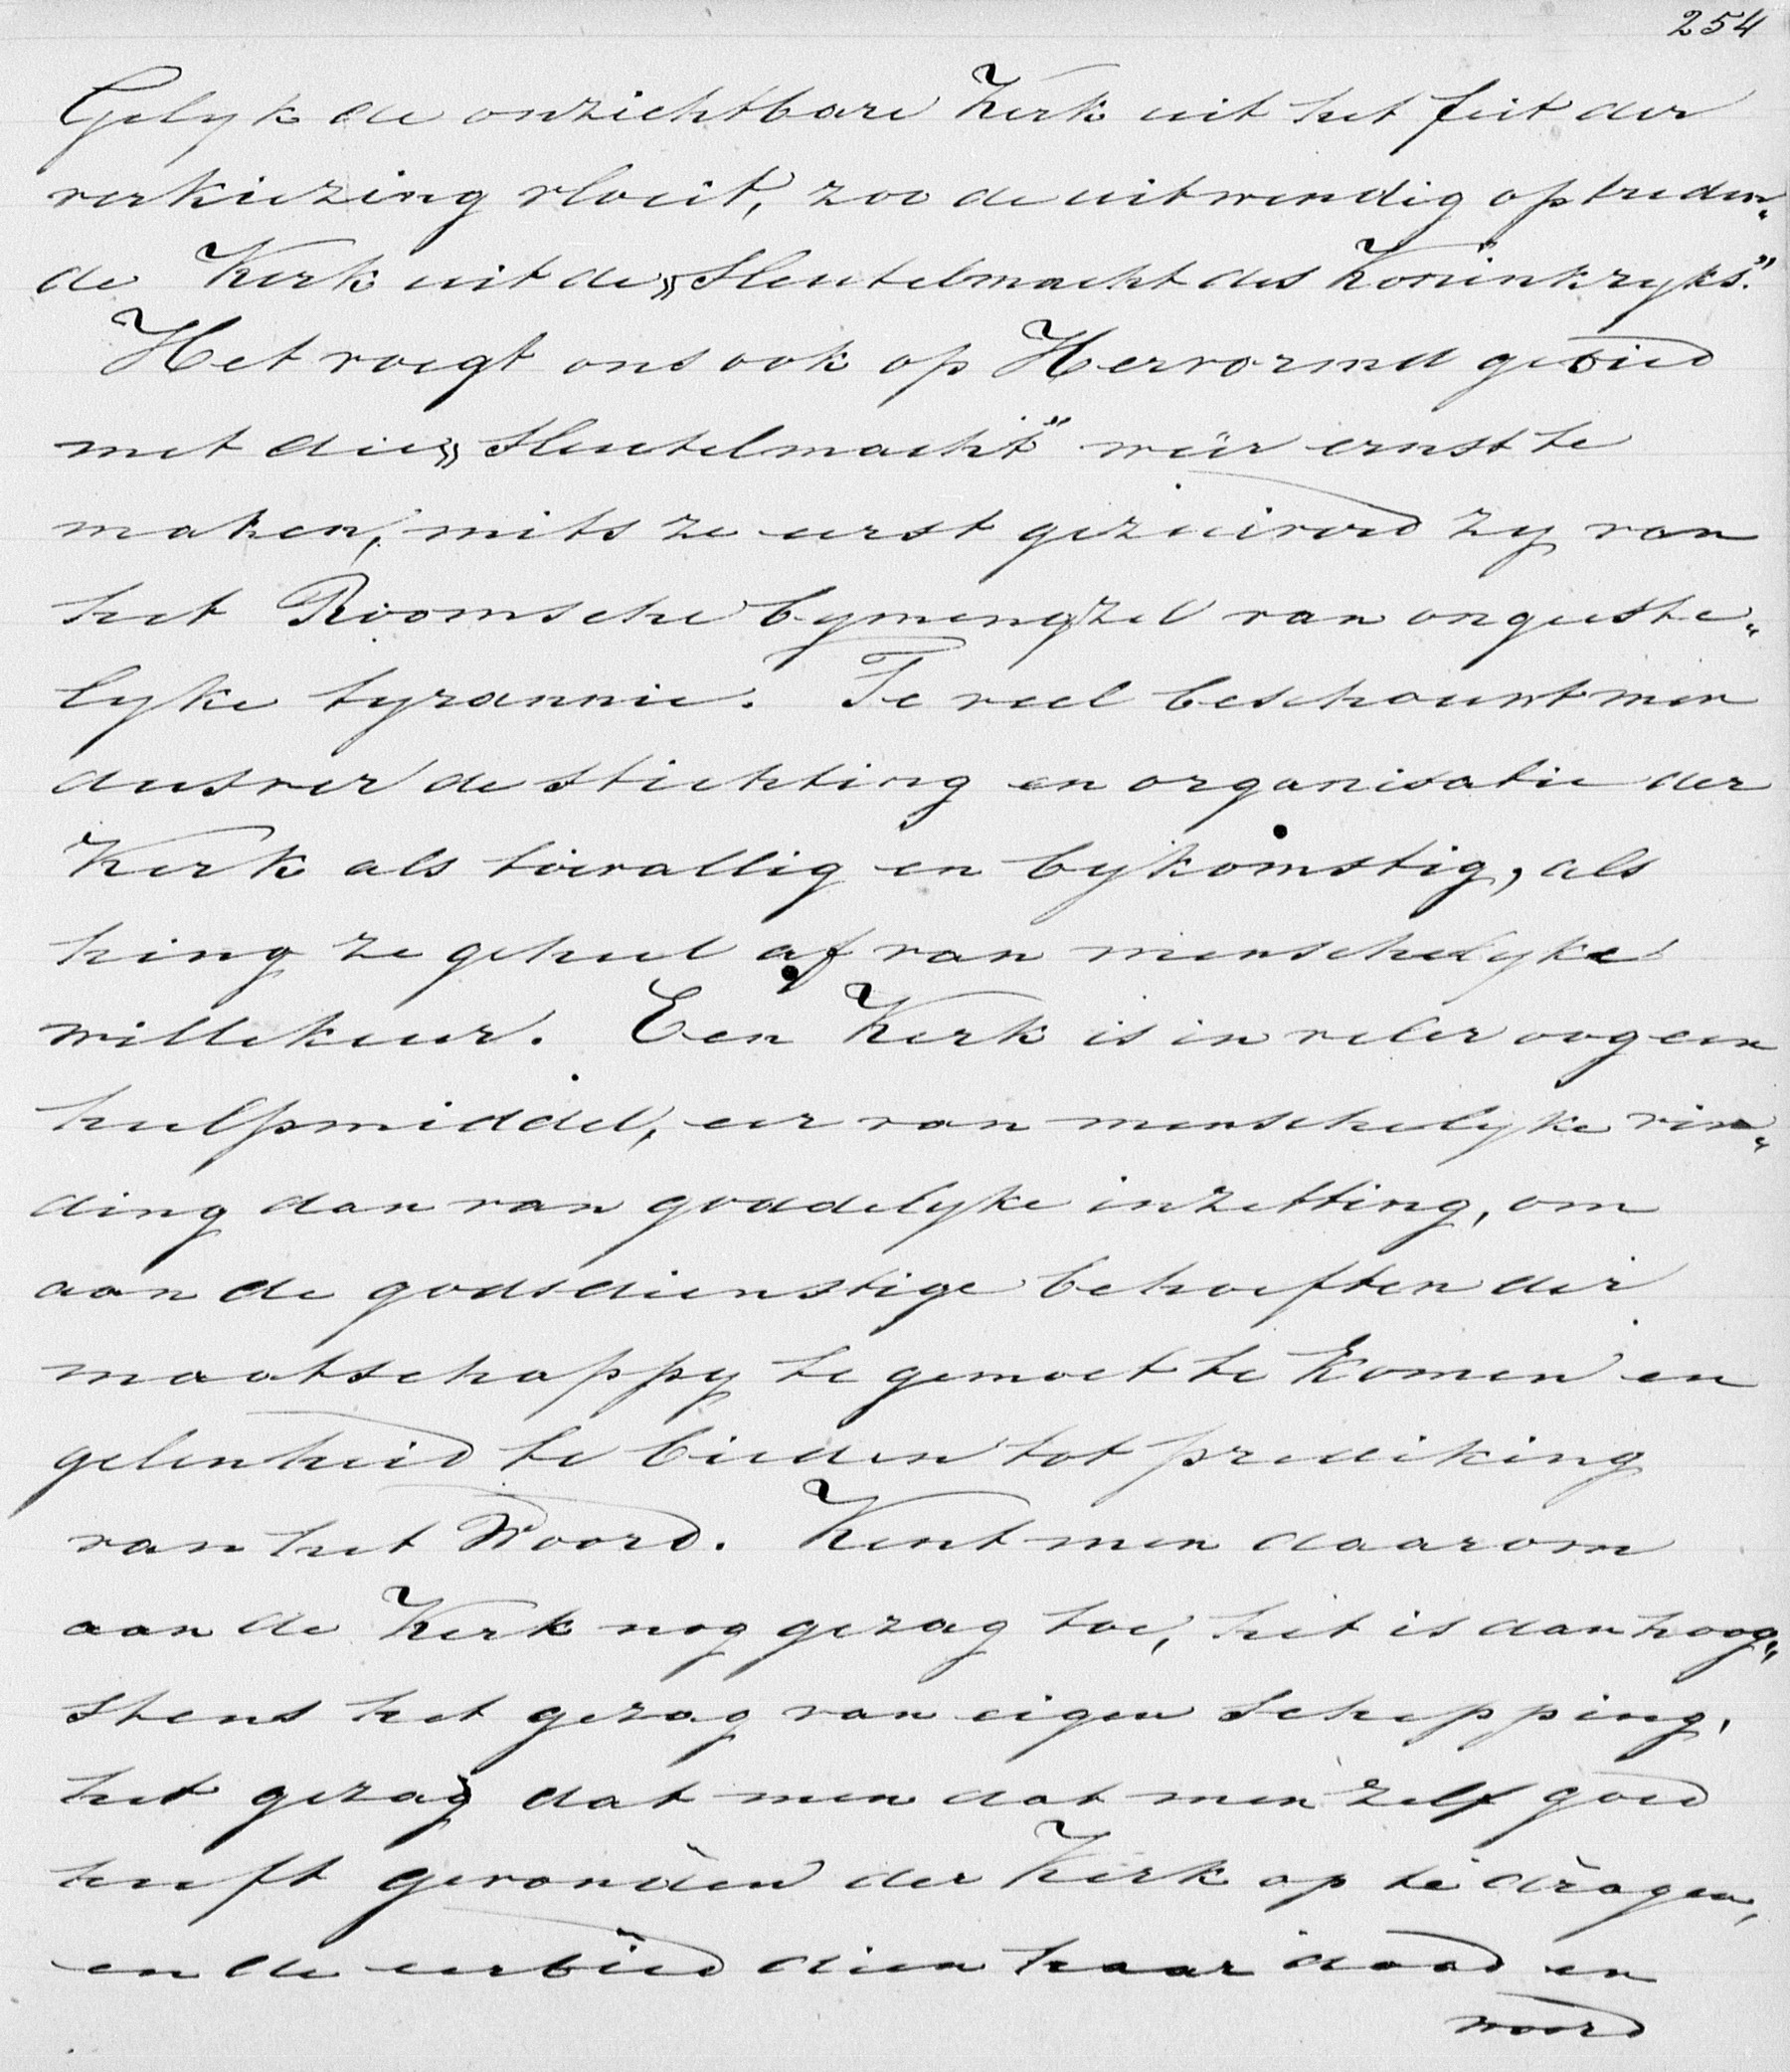 254
Gelyk de onzichtbare Kerk uit het feit der
verkiezing vloeit, zoo de uitwendig optreden„
de Kerk uit de „Sleutelmacht des Koninkryks".
Het voegt ons ook op Hervormd gebied
met die „Sleutelmacht" weêr ernst te
maken, mits ze eerst gezuiverd zy van
het Roomsche bymengzel van ongeeste„
lyke tyrannie. Te veel beschouwt men
dusver de stichting en organisatie der
Kerk als toevallig en bykomstig, als
hing ze geheel af van menschelyke
willekeur. Een Kerk is in veler oog een
hulpmiddel, eer van menschelyke vin„
ding dan van goddelyke inzetting, om
aan de godsdienstige behoeften der
maatschappy te gemoet te komen en
gelenheid te bieden tot prediking
van het Woord. Kent men daarom
aan de Kerk nog gezag toe, het is dan hoog„
stens het gezag van eigen schepping,
het gezag dat men dat men zelf goed
heeft gevonden der Kerk op te dragen,
en de eerbied dien haar daad en
woord